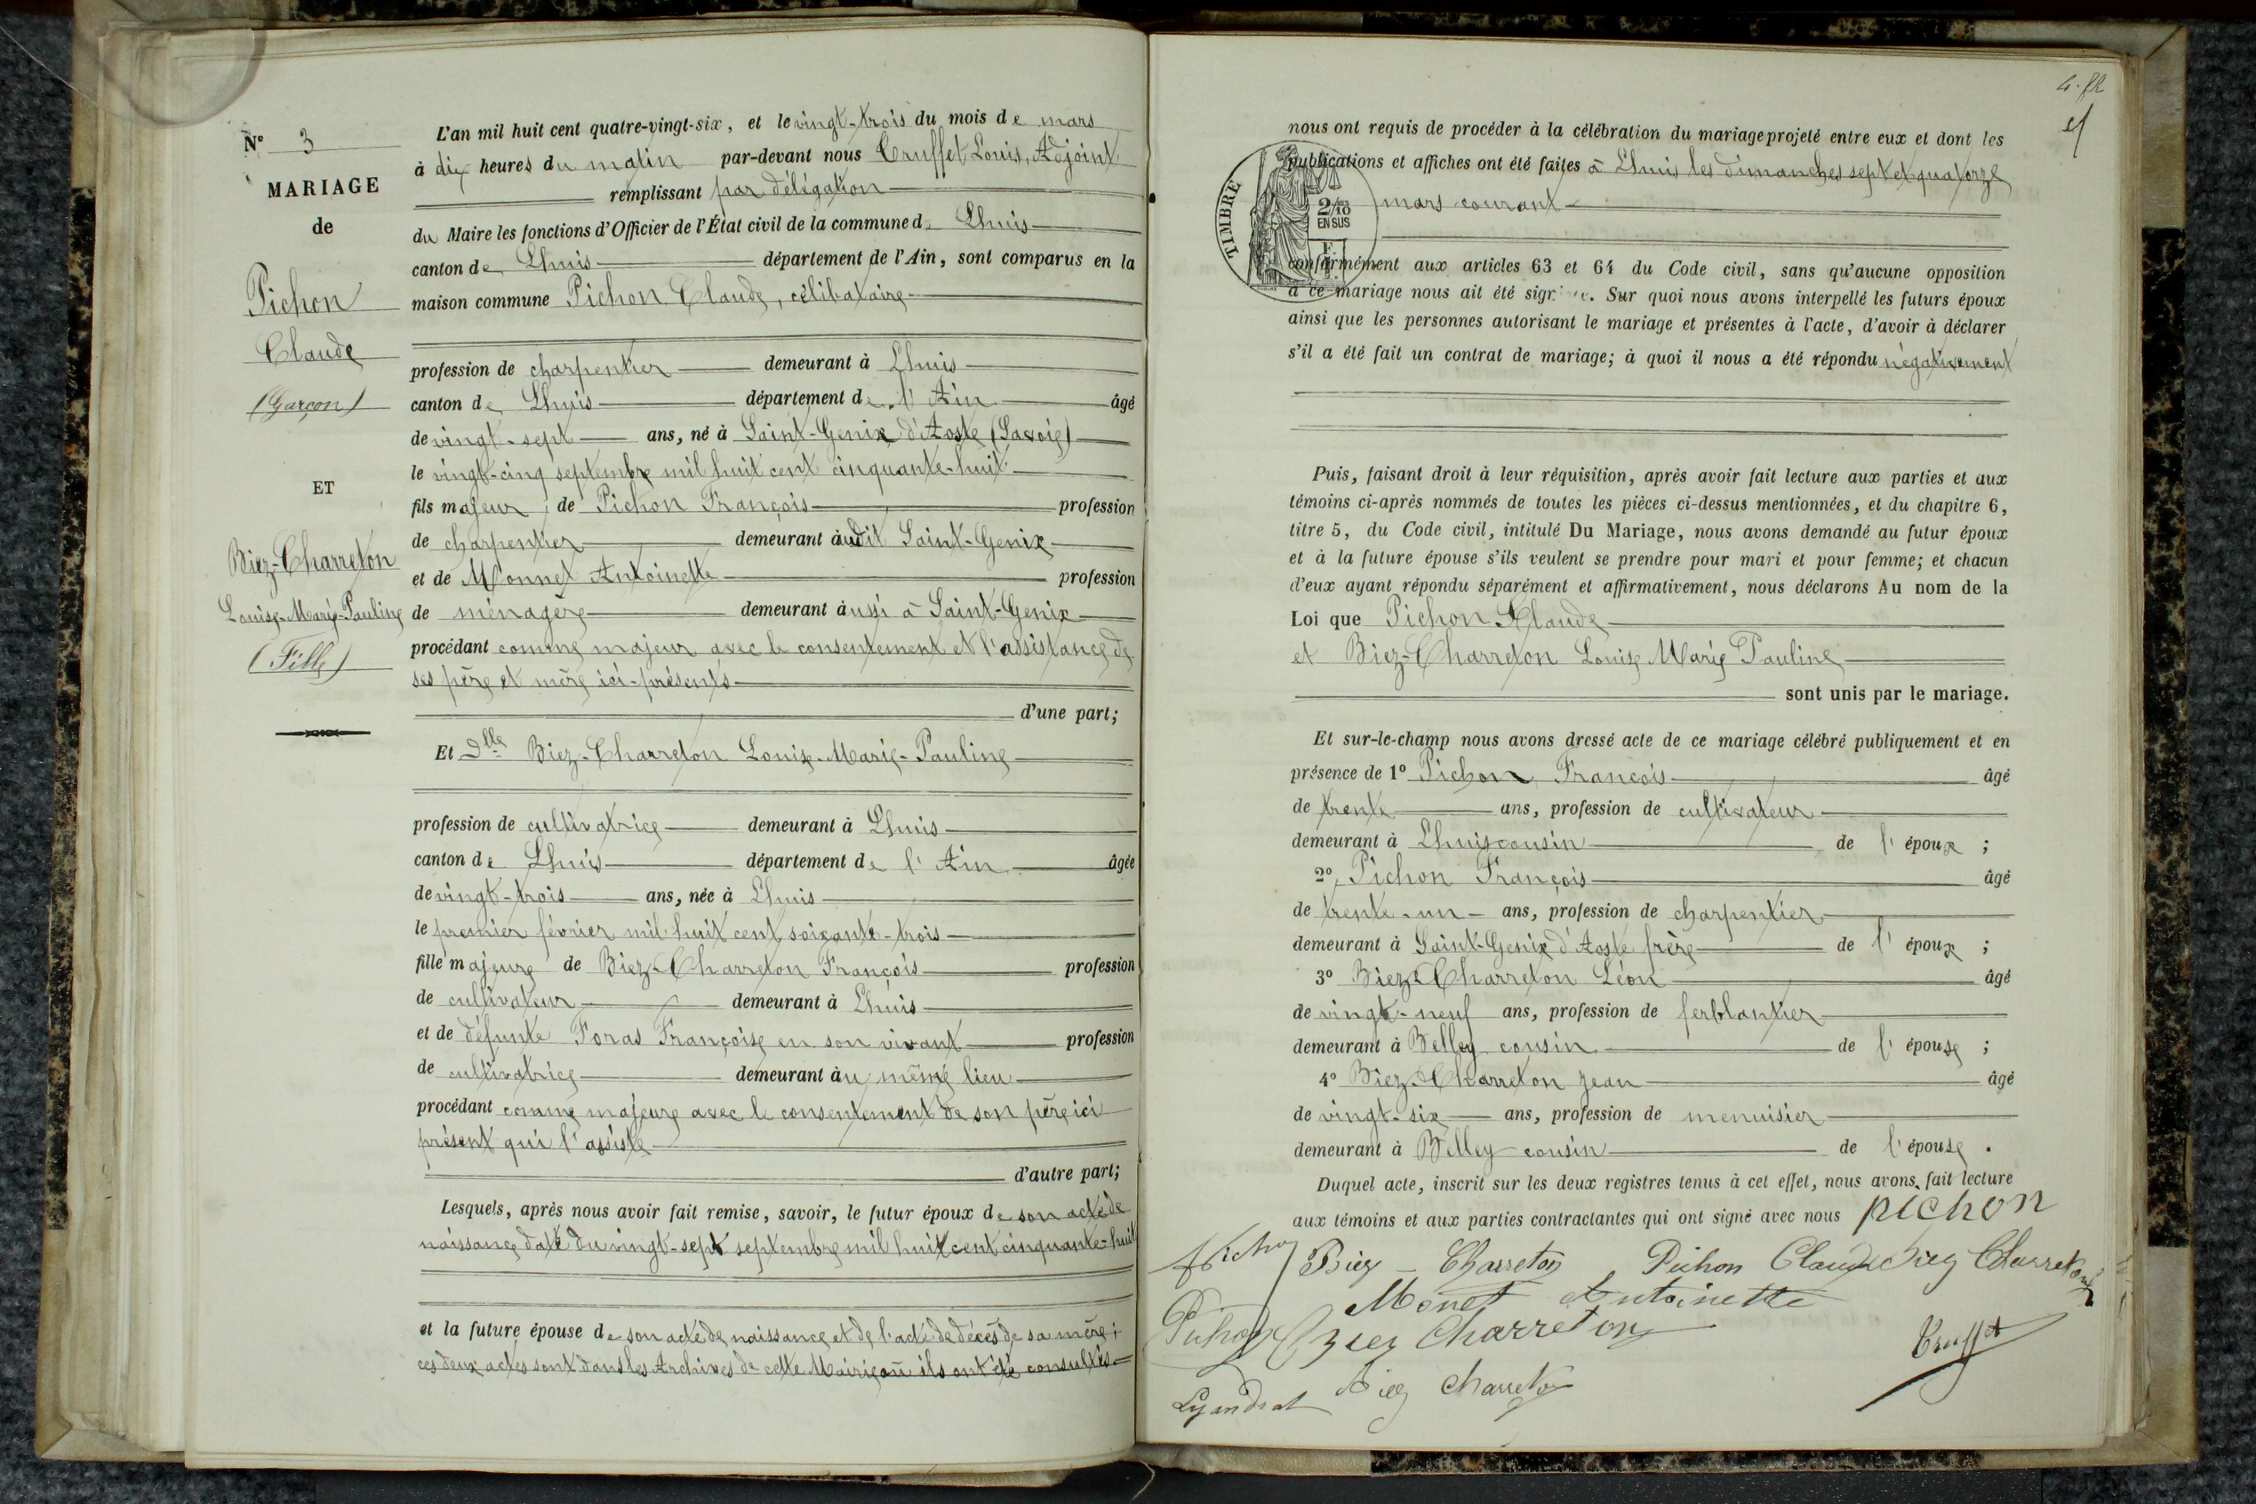 N° 3
MARIAGE
de
Pichon
Claude
(Garçon)
ET
Biez-Charreton
Louise-Marie-Pauline
(Fille)
L'an mil huit cent quatre-vingt-six, et le vingt-trois du mois de mars
à dix heures du matin par-devant nous Truffet Louis, Adjoint
remplissant par délégation
du Maire les fonctions d'Officier de l'État civil de la commune de Lhuis
canton de Lhuis département de l'Ain, sont comparus en la
maison commune Pichon Claude, célibataire
profession de charpentier demeurant à Lhuis
canton de Lhuis département de l'Ain âgé
de vingt-sept ans, né à Saint-Genix d'Aoste (Savoie)
le vingt-cinq septembre mil huit cent cinquante-huit
fils majeur de Pichon François profession
de charpentier demeurant audit Saint-Genix
et de Monnet Antoinette profession
de ménagère demeurant aussi à Saint-Genix
procédant comme majeur avec le consentement et l'assistance de
ses père et mère ici-présents
d'une part;
Et Dlle Biez-Charreton Louise-Marie-Pauline
profession de cultivatrice demeurant à Lhuis
canton de Lhuis département de l'Ain âgée
de vingt-trois ans, née à Lhuis
le premier février mil huit cent soixante-trois
fille majeure de Biez-Charreton François profession
de cultivateur demeurant à Lhuis
et de défunte Foras Françoise en son vivant profession
de cultivatrice demeurant au même lieu
procédant comme majeure avec le consentement de son père ici
présent qui l'assiste
d'autre part;
Lesquels, après nous avoir fait remise, savoir, le futur époux de son acte de
naissance daté du vingt-sept septembre mil huit cent cinquante-huit
et la future épouse de son acte de naissance et de l'acte de décès de sa mère;
ces deux actes sont dans les Archives de cette Mairie où ils ont été consultés
nous ont requis de procéder à la célébration du mariage projeté entre eux et dont les
publications et affiches ont été faites à Lhuis les dimanches sept et quatorze
mars courant
TIMBRE
2/10
EN SUS
conformément aux articles 63 et 64 du Code civil, sans qu'aucune opposition
à ce mariage nous ait été signifiée. Sur quoi nous avons interpellé les futurs époux
ainsi que les personnes autorisant le mariage et présentes à l'acte, d'avoir à déclarer
s'il a été fait un contrat de mariage; à quoi il nous a été répondu négativement
Puis, faisant droit à leur réquisition, après avoir fait lecture aux parties et aux
témoins ci-après nommés de toutes les pièces ci-dessus mentionnées, et du chapitre 6,
titre 5, du Code civil, intitulé Du Mariage, nous avons demandé au futur époux
et à la future épouse s'ils veulent se prendre pour mari et pour femme; et chacun
d'eux ayant répondu séparément et affirmativement, nous déclarons Au nom de la
Loi que Pichon Claude
et Biez-Charreton Louise Marie Pauline
sont unis par le mariage.
Et sur-le-champ nous avons dressé acte de ce mariage célébré publiquement et en
présence de 1° Pichon François âgé
de trente ans, profession de cultivateur
demeurant à Lhuis cousin de l'époux ;
2° Pichon François âgé
de trente-un ans, profession de charpentier
demeurant à Saint-Genix d'Aoste frère de l'époux ;
3° Biez-Charreton Léon âgé
de vingt-neuf ans, profession de ferblantier
demeurant à Belley cousin de l'épouse ;
4° Biez-Charreton Jean âgé
de vingt-six ans, profession de menuisier
demeurant à Belley cousin de l'épouse .
Duquel acte, inscrit sur les deux registres tenus à cet effet, nous avons fait lecture
aux témoins et aux parties contractantes qui ont signé avec nous pichon
Pichon Biez - Charreton Pichon Claude Biez Charreton
Monet Antoinette
Pichon Biez Charreton Truffet
Biez Charreton